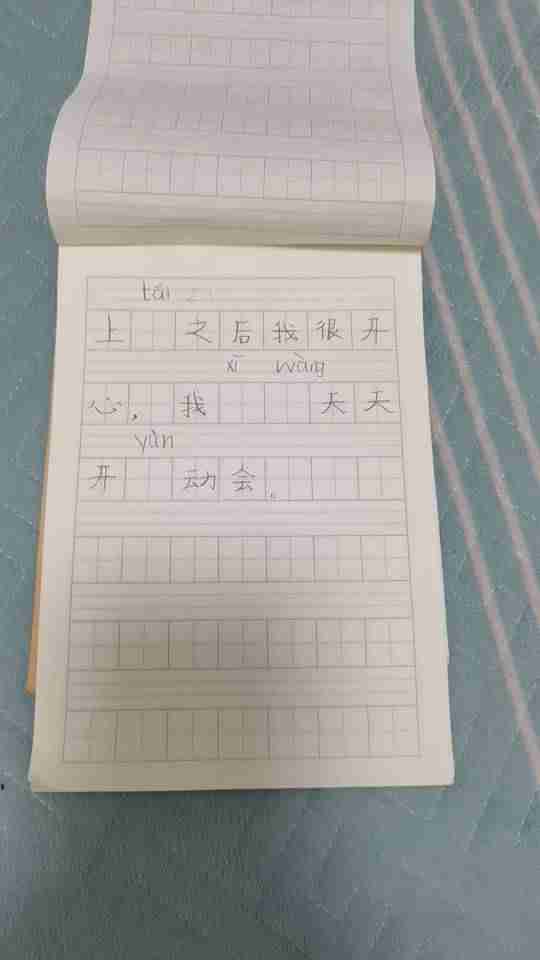 tái
上 之后我很开
xī wàng
心，我 天天
yùn
开 动会。